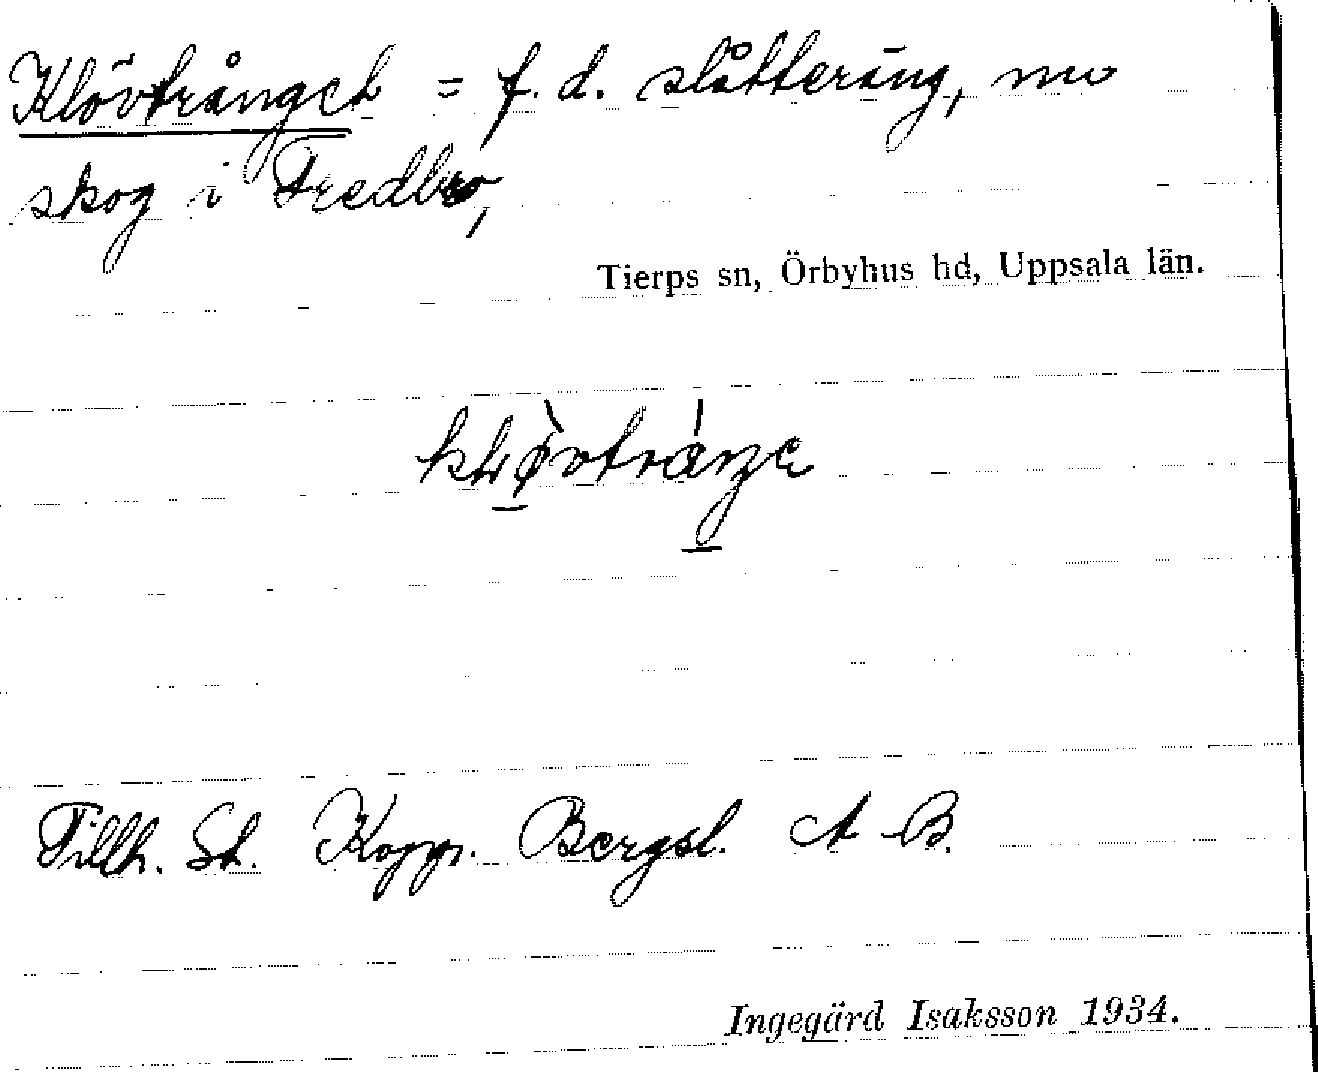 Klövtrånget = f. d. slåttering, nu
skog i Fredbro,
Tierps sn, Örbyhus hd, Uppsala län.
Tillh. St. Kopp. Bergsl. A B.
Ingegärd Isaksson 1934.